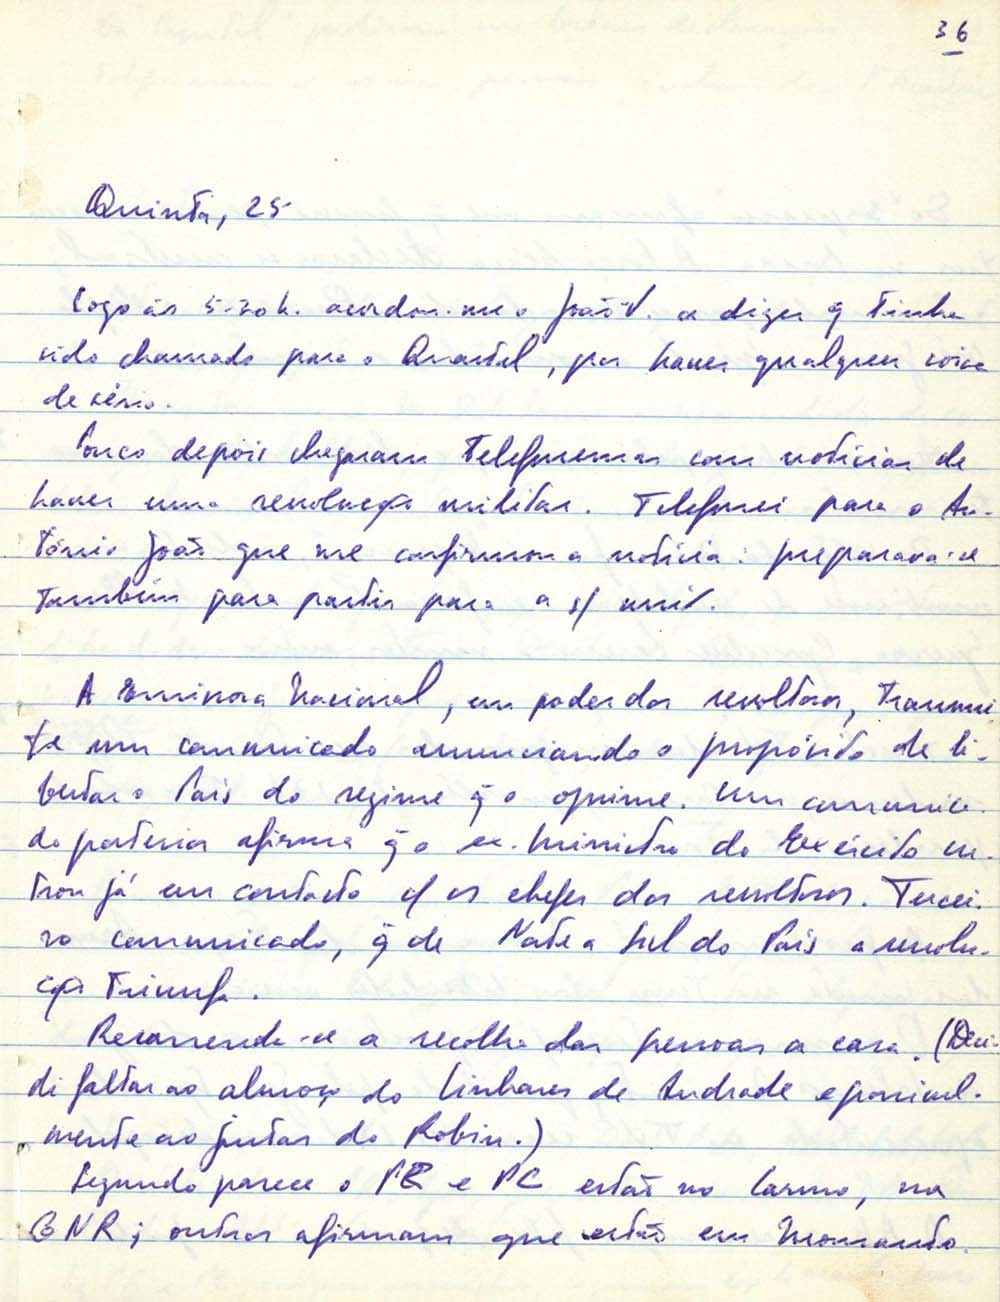 36
Quinta, 25
Logo às 5-30h. acordou-me o João V. a dizer q̃ tinha
sido chamado para o Quartel, por haver qualquer coisa
de sério.
Pouco depois chegaram telefonemas com notícias de
haver uma revolução militar. Telefonei para o An-
tónio João que me confirmou a notícia: preparava-se
também para partir para a s/ unid.
A Emissora Nacional, em poder dos revoltosos, transmi-
te um comunicado anunciando o propósito de li-
bertar o País do regime q̃ o oprime. Um comunica-
do posterior afirma q̃ o ex-Ministro do Exército en-
trou já em contacto c/ os chefes dos revoltosos. Tercei-
ro comunicado, q̃ de Norte a Sul do País a revolu-
ção triunfa.
Recomenda-se a recolha das pessoas a casa. (Deci-
di faltar ao almoço do Linhares de Andrade e possivel-
mente ao jantar do Robin.)
Segundo parece o PR e PC estão no Carmo, na
GNR; outros afirmam que estão em Monsanto.